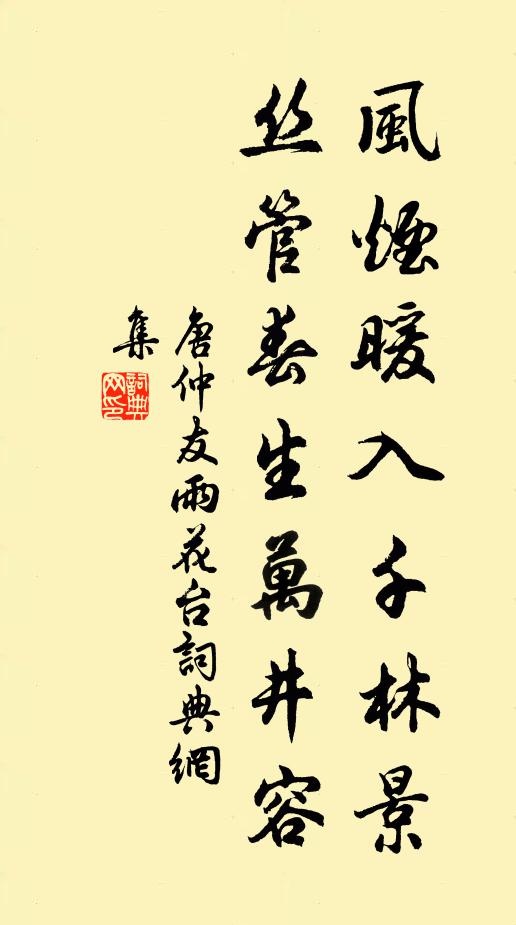 風煙暖入千林景
丝管春生萬井容
唐仲友雨花台詞典網
集
詞典
网印